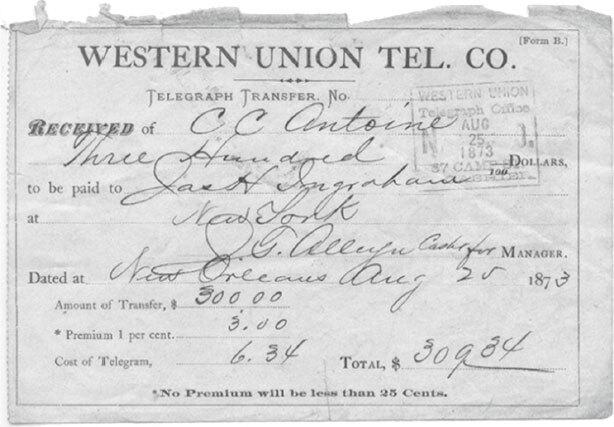 [Form B.]
WESTERN UNION TEL. CO.
TELEGRAPH TRANSFER. No.
WESTERN UNION
Telegraph Office
AUG
25
1873
RECEIVED of C C Antoine
Three Hundred 100 DOLLARS,
to be paid to Jas H Ingraham
at New York
G. Alleyn Cashr for MANAGER.
Dated at New Orleans Aug 25 1873
Amount of Transfer, $ 300.00
* Premium 1 per cent. 3.00
Cost of Telegram, 6.34 TOTAL, $ 309.34
*No Premium will be less than 25 Cents.